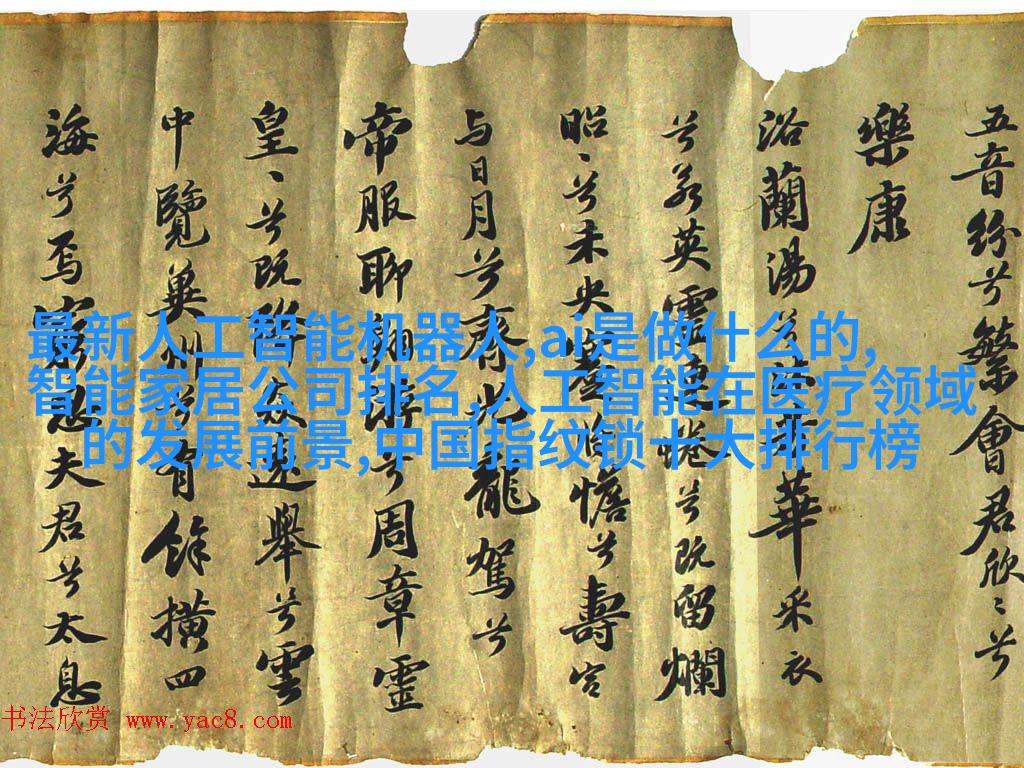 五音紛兮繁會君欣〻兮
樂康
浴蘭湯兮沐芳華采衣
兮若英靈連蜷兮既留爛
昭〻兮未央蹇将憺兮壽宮
与日月兮齊光龍駕兮
帝服聊翱遊兮周章靈
皇〻兮既降猋遠舉兮雲
中覽冀州兮有餘橫四
海兮焉窮思夫君兮太息
最新人工智能机器人,ai是做什么的,
智能家居公司排名,人工智能在医疗领域
的发展前景,中国指纹锁十大排行榜
书法欣赏 www.yac8.com